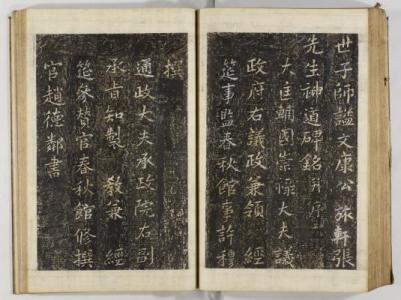 世子師諡文康公旅軒張
先生神道碑銘幷序
大匡輔國崇祿大夫議
政府右議政兼領 經
筵事監春秋館事許穆
撰
通政大夫承政院右副
承旨知製 敎兼 經
筵參贊官春秋館修撰
官趙德鄰書